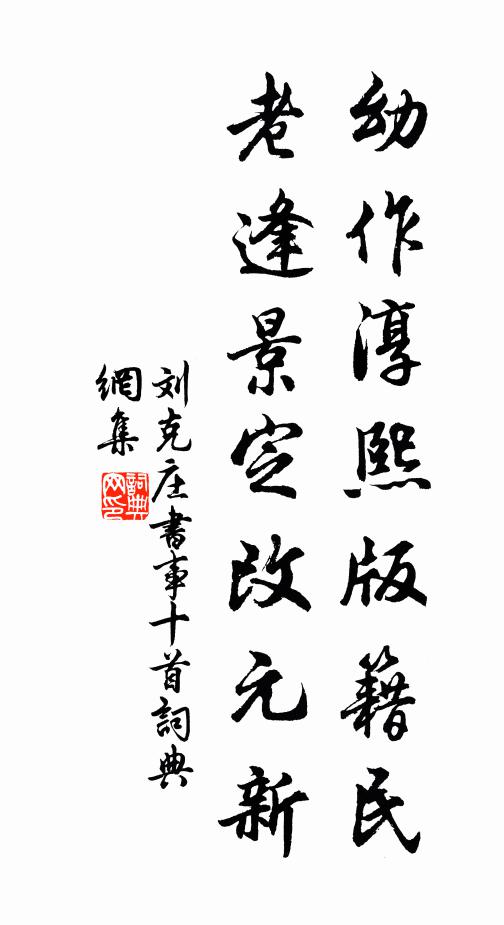 幼作淳熙版籍民
老逢景定改元新
刘克庄書事十首詞典
網集
詞典网印